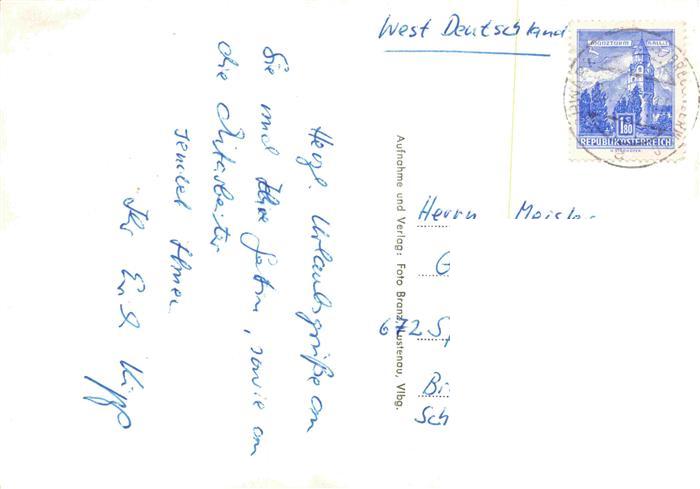 Herzl. Urlaubsgrüße an
Sie und Ihre Gattin, sowie an
die Mitarbeiter
sendet Ihnen
Ihr Erich Kipp
West Deutschland
MÜNZTURM HALL I. T.
1.80
REPUBLIK ÖSTERREICH
Aufnahme und Verlag: Foto Branz Lustenau, Vlbg.
Herrn Meister
G
672 Sp
Bi
Sch